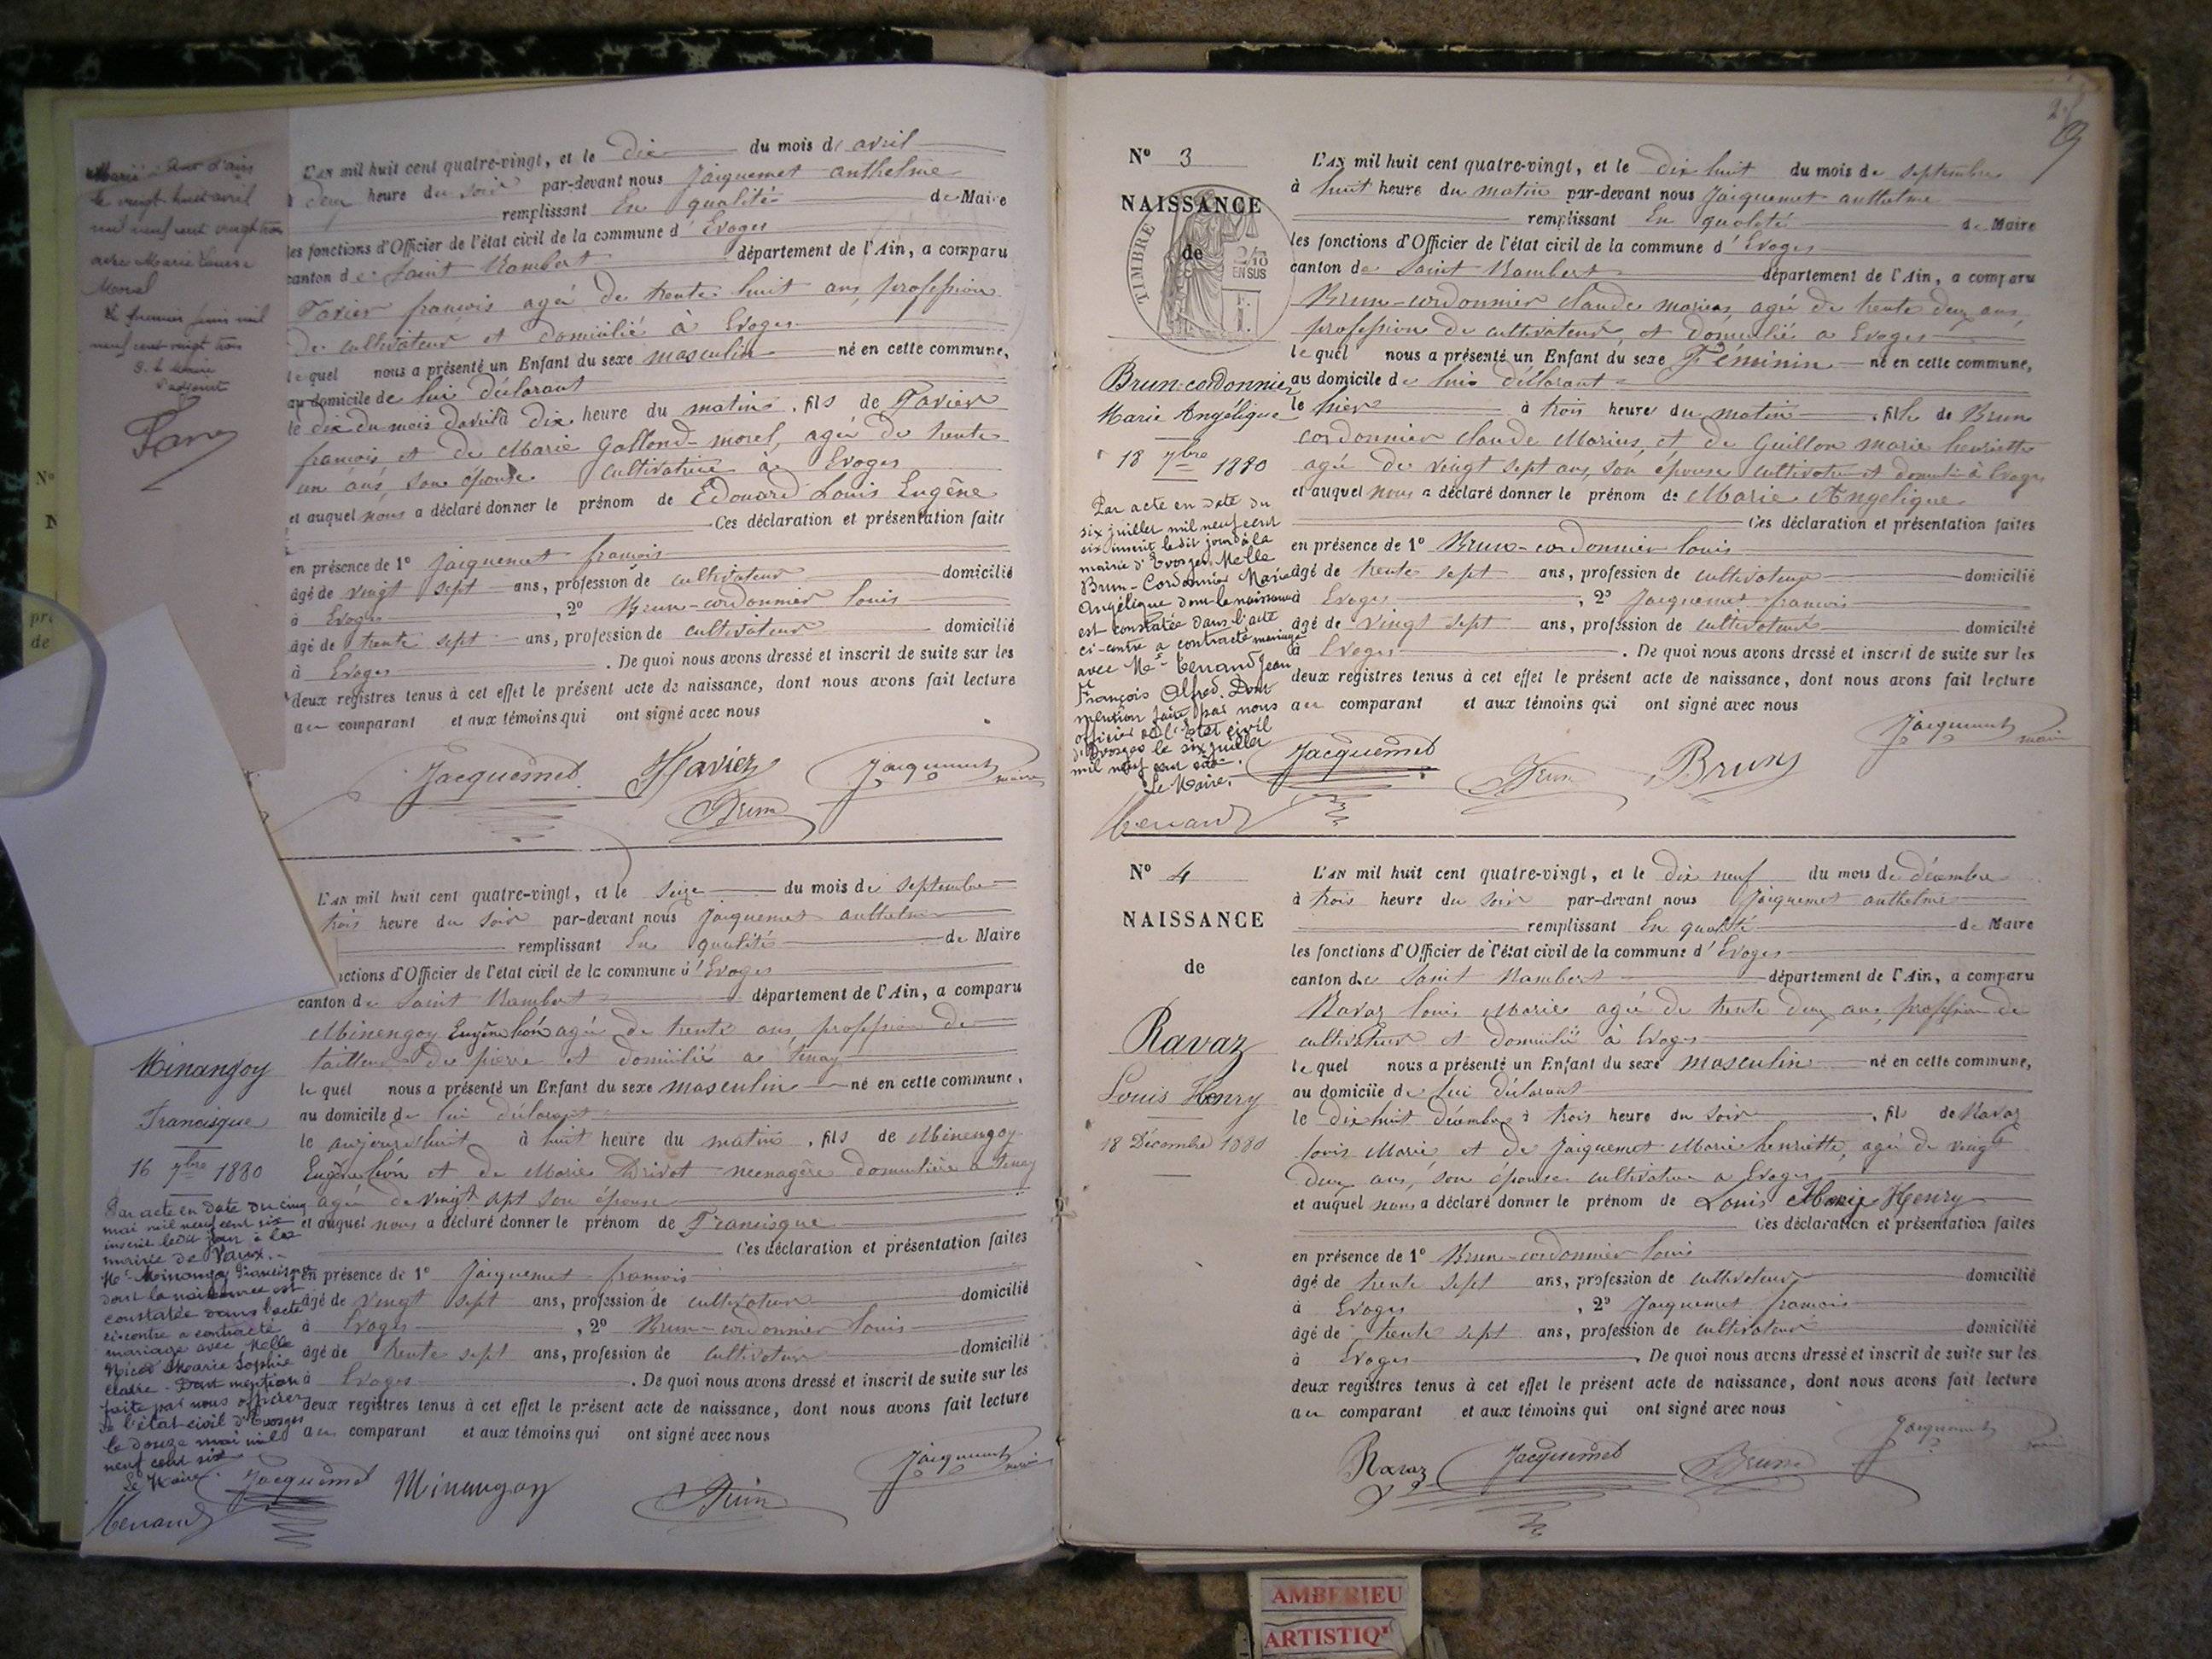 L'an mil huit cent quatre-vingt, et le dix du mois de avril
à deux heure du soir par-devant nous Jacquemet anthelme
remplissant En qualité de Maire
les fonctions d'Officier de l'état civil de la commune d'Evoges
canton de Saint Rambert département de l'Ain, a comparu
Favier françois agée de trente huit ans, profession
de cultivateur et domicilié à Evoges
lequel nous a présenté un Enfant du sexe masculin né en cette commune,
au domicile de lui déclarant
le dix du mois d'avril à dix heure du matin, fils de Favier
françois et de Marie Gallond-morel, agée de trente
un ans, son épouse cultivatrice à Evoges
et auquel nous a déclaré donner le prénom de Edouard Louis Eugène
Ces déclaration et présentation faites
en présence de 1º Jacquemet françois
âgé de vingt sept ans, profession de cultivateur domicilié
à Evoges, 2º Brun-cordonnier louis
âgé de trente sept ans, profession de cultivateur domicilié
à Evoges. De quoi nous avons dressé et inscrit de suite sur les
deux registres tenus à cet effet le présent acte de naissance, dont nous avons fait lecture
au comparant et aux témoins qui ont signé avec nous
Jacquemet Favier Jacquemet maire
Brun
le vingt huit avril
mil neuf cent vingt trois
avec Marie Louise
Morel
neuf cent vingt trois
L'adjoint
L'an mil huit cent quatre-vingt, et le seize du mois de septembre
trois heure du soir par-devant nous Jacquemet anthelme
remplissant En qualité de Maire
ctions d'Officier de l'état civil de la commune d'Evoges
canton de Saint Rambert département de l'Ain, a comparu
Minengoy Eugène Léon agée de trente ans, profession de
tailleur de pierre et domicilié à tenay
lequel nous a présenté un Enfant du sexe masculin né en cette commune,
au domicile de lui déclarant
le aujourd'huit à huit heure du matin, fils de Minengoy
Eugène Léon et de Marie Drivot menagère domicilière a tenay
agée de vingt sept son épouse
et auquel nous a déclaré donner le prénom de Francisque
Ces déclaration et présentation faites
en présence de 1º Jacquemet françois
âgé de vingt sept ans, profession de cultivateur domicilié
à Evoges, 2º Brun-cordonnier louis
âgé de trente sept ans, profession de cultivateur domicilié
à Evoges. De quoi nous avons dressé et inscrit de suite sur les
deux registres tenus à cet effet le présent acte de naissance, dont nous avons fait lecture
au comparant et aux témoins qui ont signé avec nous
Minangoy
Francisque
16 7bre 1880
Par acte en date du cinq
mai mil neuf cent six
inscrit ledit jour à la
mairie de Vaux.
Mr Minangoy Francisque
dont la naissance est
constatée dans l'acte
ci-contre a contracté
mariage avec Melle
Nicod Marie Sophie
Claire. Dont mention
faite par nous officier
de l'état-civil d'Evosges
le douze mai mil
neuf cent six
Le Maire.
Jacquemet Minangoy Brun Jacquemet maire
Tenand
Nº 3
NAISSANCE
de
TIMBRE
2/10
EN SUS
Brun-cordonnier
Marie Angélique
18 7bre 1880
Par acte en date du
six juillet mil neuf cent
six inscrit ledit jour à la
mairie d'Evosges, Melle
Brun-Cordonnier Marie
Angélique dont la naissance
est constatée dans l'acte
ci-contre a contracté mariage
avec Mr Tenand Jean
François Alfred. Dont
mention faite par nous
officier de l'état civil
d'Evosges le six juillet
mil neuf cent six.
Le Maire.
Tenand
L'an mil huit cent quatre-vingt, et le dix huit du mois de septembre
à huit heure du matin par-devant nous Jacquemet anthelme
remplissant En qualité de Maire
les fonctions d'Officier de l'état civil de la commune d'Evoges
canton de Saint Rambert département de l'Ain, a comparu
Brun-cordonnier claude marius, agée de trente deux ans,
profession de cultivateur, et domicilié a Evoges
lequel nous a présenté un Enfant du sexe Féminin né en cette commune,
au domicile de lui déclarant
le hier à trois heures du matin, fille de Brun
cordonnier claude Marius, et de Guillon marie henriette
agée de vingt sept ans, son épouse cultivateur et domicilié à Evoges
et auquel nous a déclaré donner le prénom de Marie Angelique
Ces déclaration et présentation faites
en présence de 1º Brun-cordonnier louis
âgé de trente sept ans, profession de cultivateur domicilié
à Evoges, 2º Jacquemet françois
âgé de vingt sept ans, profession de cultivateur domicilié
à Evoges. De quoi nous avons dressé et inscrit de suite sur les
deux registres tenus à cet effet le présent acte de naissance, dont nous avons fait lecture
au comparant et aux témoins qui ont signé avec nous
Jacquemet Brun Brun Jacquemet maire
Nº 4
NAISSANCE
de
Ravaz
Louis Henry
18 Décembre 1880
L'an mil huit cent quatre-vingt, et le dix neuf du mois de décembre
à trois heure du soir par-devant nous Jacquemet anthelme
remplissant En qualité de Maire
les fonctions d'Officier de l'état civil de la commune d'Evoges
canton de Saint Rambert département de l'Ain, a comparu
Ravaz louis Marie agée de trente deux ans, profession de
cultivateur et domicilié à Evoges
lequel nous a présenté un Enfant du sexe masculin né en cette commune,
au domicile de lui déclarant
le dix huit décembre à trois heure du soir, fils de Ravaz
louis Marie et de Jacquemet Marie henriette, agée de vingt
deux ans, son épouse cultivatrice a Evoges
et auquel nous a déclaré donner le prénom de Louis Marie Henry
Ces déclaration et présentation faites
en présence de 1º Brun-cordonnier louis
âgé de trente sept ans, profession de cultivateur domicilié
à Evoges, 2º Jacquemet françois
âgé de trente sept ans, profession de cultivateur domicilié
à Evoges. De quoi nous avons dressé et inscrit de suite sur les
deux registres tenus à cet effet le présent acte de naissance, dont nous avons fait lecture
au comparant et aux témoins qui ont signé avec nous
Ravaz Jacquemet Brun Jacquemet maire
AMBERIEU
ARTISTIQ